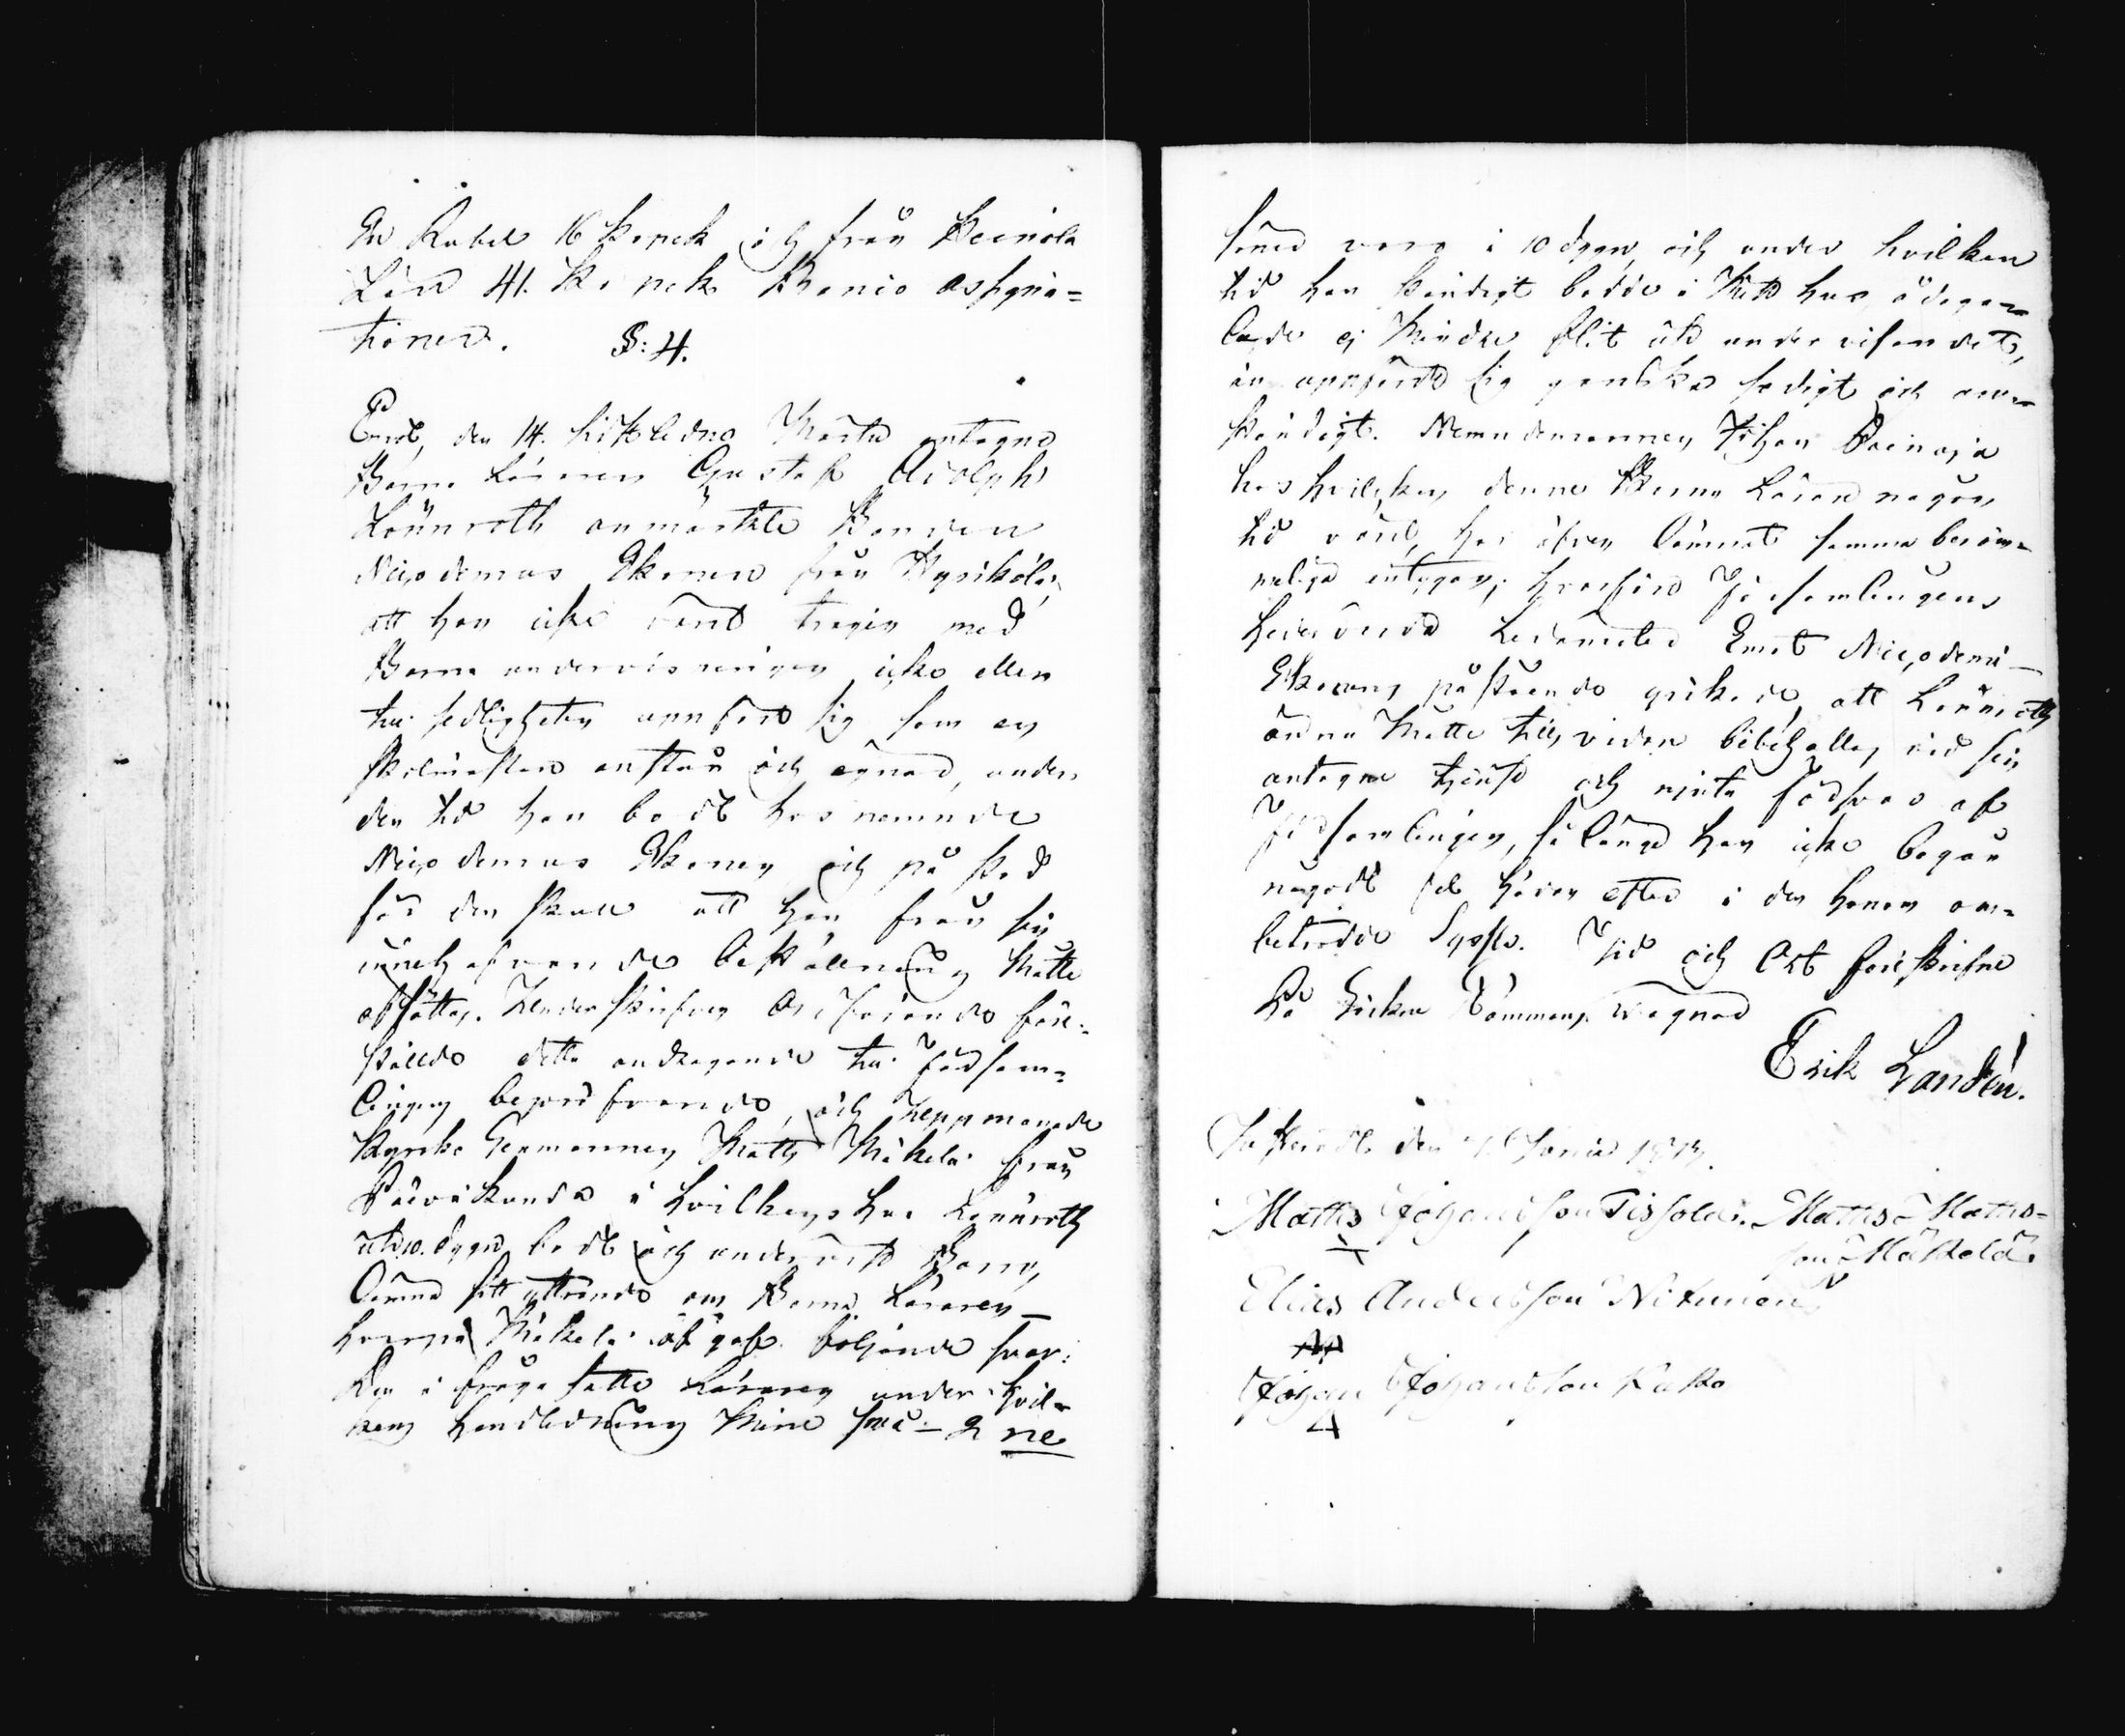 En Rubel 16 kopek och från Heinola
Län 41. kopek Banco assigna=
tioner.
§: 4.
Emot, den 14. sistledne Martii antagne
Barna Läraren Gustaf Adolph
Lönnroth anmärkte Bonden
Nicodemus Ekonen från Kyrikälä,
att han icke varit trägen med
Barna undervisningen, icke eller
till sedligheten uppfört sig som en
Skolmästare anstår och ägnar, under
den tid han bodt hos nämnde
Nicodemus Ekonen, och på stod
för den skull att han från sin
innehafvande beställning måtte
afsättas. Underskrifven Ordförande före-
ställde detta andragande till Församl=
lingens bepröfvande, och uppmanade
Kyrko Värmannen Matts Mäkelä från
Päiväkunda i hvilkens hus Lönnroth
uti 10. dygn bodt och undervist Barn,
lämna sitt yttrande om Barna Läraren —
hvarpå Mäkelä afgaf följande svar:
Den i fråga satte Läraren under hvil=
kens handledning mine små — 2 ne
söner voro i 10 dygn, och under hvilken
tid han ständigt bodde i mitt hus, ådaga=
lade ej mindre flit uti undervisandet,
än uppförde sig ganska sedigt och an=
ständigt. Nemndemannen Johan
hos hvilken denne Barna Lärare någon
tid varit, har äfven lämnat samma beröm=
meliga intygan; hvarföre Församlingens
hedervärda Ledamöter Emot Nicodemi
Ekonens påstående yrkade, att Lönnroth
ännu måtte tills vidare bibehållas vid sin
antagne tjenst och njuta försvar af
Församlingen, så länge han icke begår
något fel här efter i den honom an=
betrodde Syssla. Tid och Ort föreskrefne
På Kyrko Stämmans vägnar
Erik Landén.
Justeradt den Junii
Matts Johansson Tissolai. Matts Matts=
son Mäkelä.
Elias Andersson Nikunen
Johan Johansson Kukko